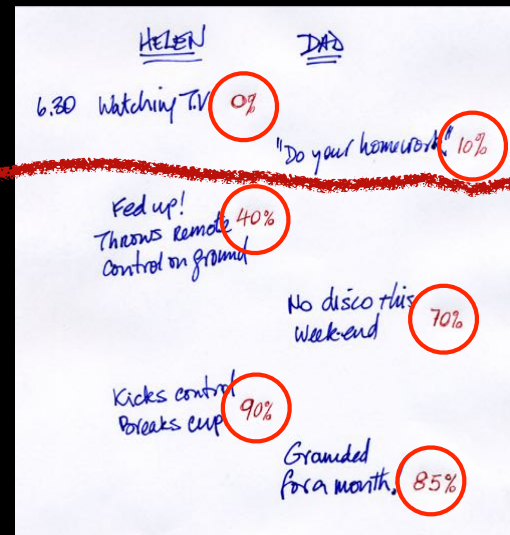 HELEN DAD
6.30 Watching T.V 0%
"Do your homework" 10%
Fed up!
Throws remote 40%
control on ground
No disco this
week-end 70%
Kicks control
Breaks cup 90%
Grounded
for a month. 85%